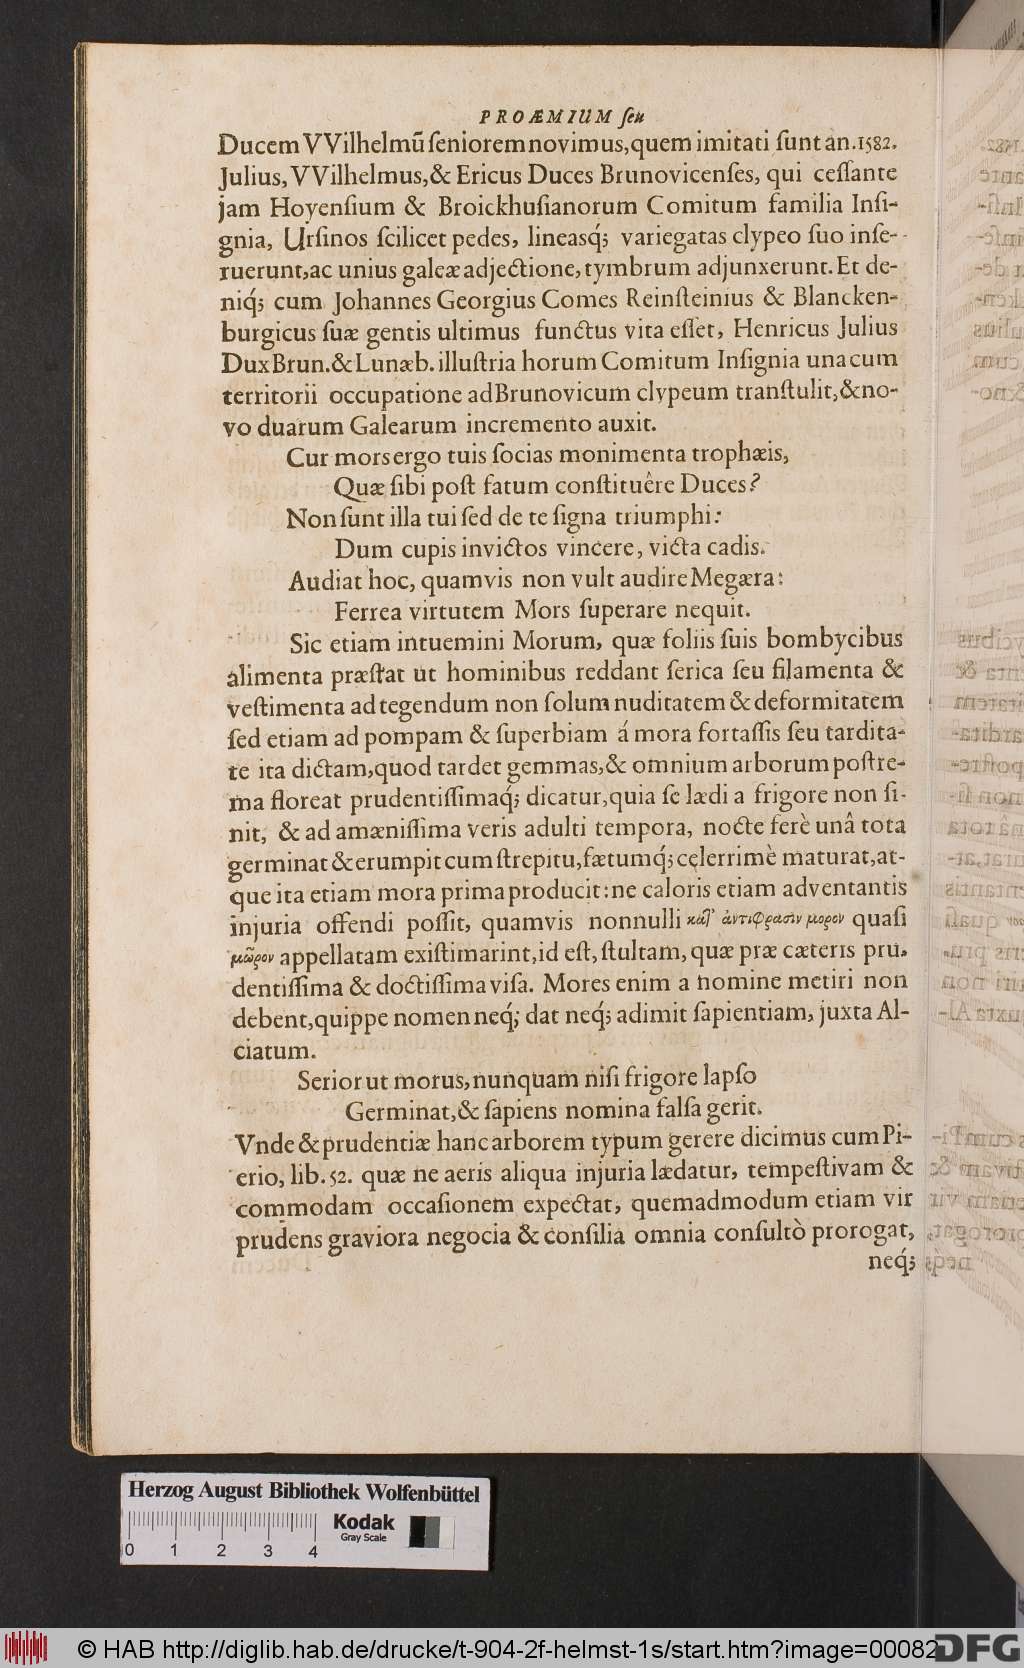 PROÆMIUM ſeu
Ducem VVilhelmũ ſeniorem novimus, quem imitati ſunt an. 1582.
Julius, VVilhelmus, & Ericus Duces Brunovicenſes, qui ceſſante
jam Hoyenſium & Broickhuſianorum Comitum familia Inſi-
gnia, Urſinos ſcilicet pedes, lineasq́; variegatas clypeo ſuo inſe-
ruerunt, ac unius galeæ adjectione, tymbrum adjunxerunt. Et de-
niq́; cum Johannes Georgius Comes Reinſteinius & Blancken-
burgicus ſuæ gentis ultimus functus vita eſſet, Henricus Julius
Dux Brun. & Lunæb. illuſtria horum Comitum Inſignia una cum
territorii occupatione ad Brunovicum clypeum tranſtulit, & no-
vo duarum Galearum incremento auxit.
Cur mors ergo tuis ſocias monimenta trophæis,
Quæ ſibi poſt fatum conſtituêre Duces?
Non ſunt illa tui ſed de te ſigna triumphi:
Dum cupis invictos vincere, victa cadis.
Audiat hoc, quamvis non vult audire Megæra:
Ferrea virtutem Mors ſuperare nequit.
Sic etiam intuemini Morum, quæ foliis ſuis bombycibus
alimenta præſtat ut hominibus reddant ſerica ſeu filamenta &
veſtimenta ad tegendum non ſolum nuditatem & deformitatem
ſed etiam ad pompam & ſuperbiam á mora fortaſſis ſeu tardita-
te ita dictam, quod tardet gemmas, & omnium arborum poſtre-
ma floreat prudentiſſimaq́; dicatur, quia ſe lædi a frigore non ſi-
nit, & ad amæniſſima veris adulti tempora, nocte ferè unâ tota
germinat & erumpit cum ſtrepitu, fætumq́; celerrimè maturat, at-
que ita etiam mora prima producit: ne caloris etiam adventantis
injuria offendi poſſit, quamvis nonnulli καῖ ἀντιφρασὶν μορον quaſi
μῶρον appellatam exiſtimarint, id eſt, ſtultam, quæ præ cæteris pru-
dentiſſima & doctiſſima viſa. Mores enim a nomine metiri non
debent, quippe nomen neq́; dat neq́; adimit ſapientiam, juxta Al-
ciatum.
Serior ut morus, nunquam niſi frigore lapſo
Germinat, & ſapiens nomina falſa gerit.
Vnde & prudentiæ hanc arborem typum gerere dicimus cum Pi-
erio, lib. 52. quæ ne aeris aliqua injuria lædatur, tempeſtivam &
commodam occaſionem expectat, quemadmodum etiam vir
prudens graviora negocia & conſilia omnia conſultò prorogat,
neq́;
Herzog August Bibliothek Wolfenbüttel
Kodak
Gray Scale
0 1 2 3 4
© HAB http://diglib.hab.de/drucke/t-904-2f-helmst-1s/start.htm?image=00082
DFG